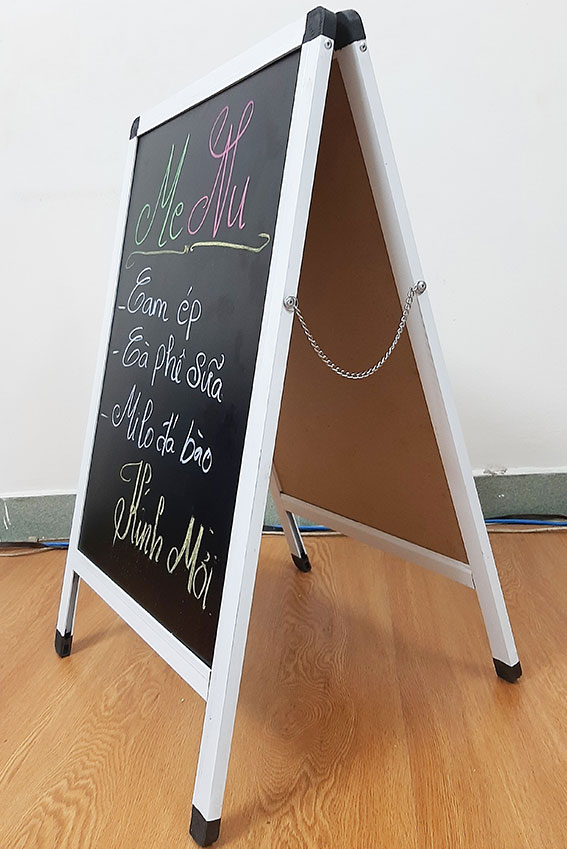 MeNu
- Cam ép
- Cà phê sữa
- Milo đá bào
Kính Mời